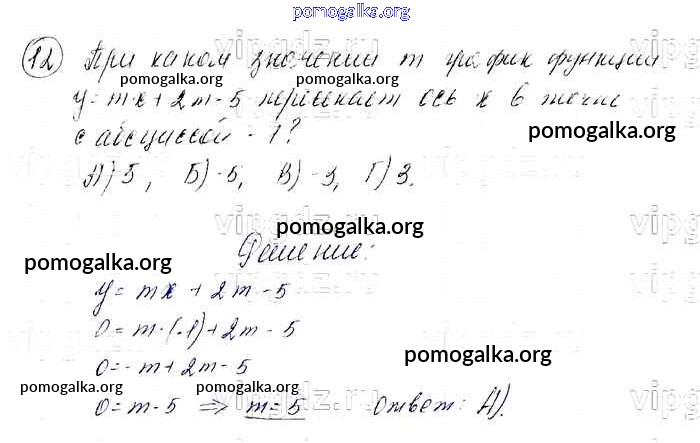 pomogalka.org
12 При каком значении m график функции
pomogalka.org pomogalka.org
y = mx + 2m - 5 пересекает ось x в точке
с абсциссой -1?
pomogalka.org
А) 5, Б) -5, В) -3, Г) 3.
vipgdz.ru
pomogalka.org
Решение:
pomogalka.org
y = mx + 2m - 5
0 = m·(-1) + 2m - 5
0 = -m + 2m - 5
pomogalka.org
pomogalka.org pomogalka.org
0 = m - 5 ⇒ m = 5 Ответ: А).
vipgdz.ru